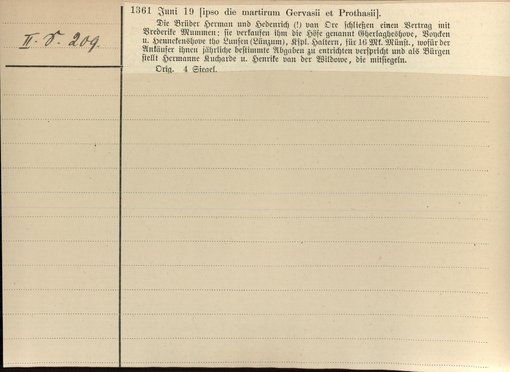 1361 Juni 19 [ipso die martirum Gervasii et Prothasii].
Die Brüder Herman und Hedenrich (!) van Ore schließen einen Vertrag mit
Vrederike Mummen: sie verkaufen ihm die Höfe genannt Gherlagheshove, Voycken
u. Hennekenshove tho Lunsen (Lünzum), Kspl. Haltern, für 16 Mk. Münst., wofür der
Ankäufer ihnen jährliche bestimmte Abgaben zu entrichten verspricht und als Bürgen
stellt Hermanne Kucharde u. Henrike van der Wildowe, die mitsiegeln.
Orig. 4 Siegel.
II. 209.